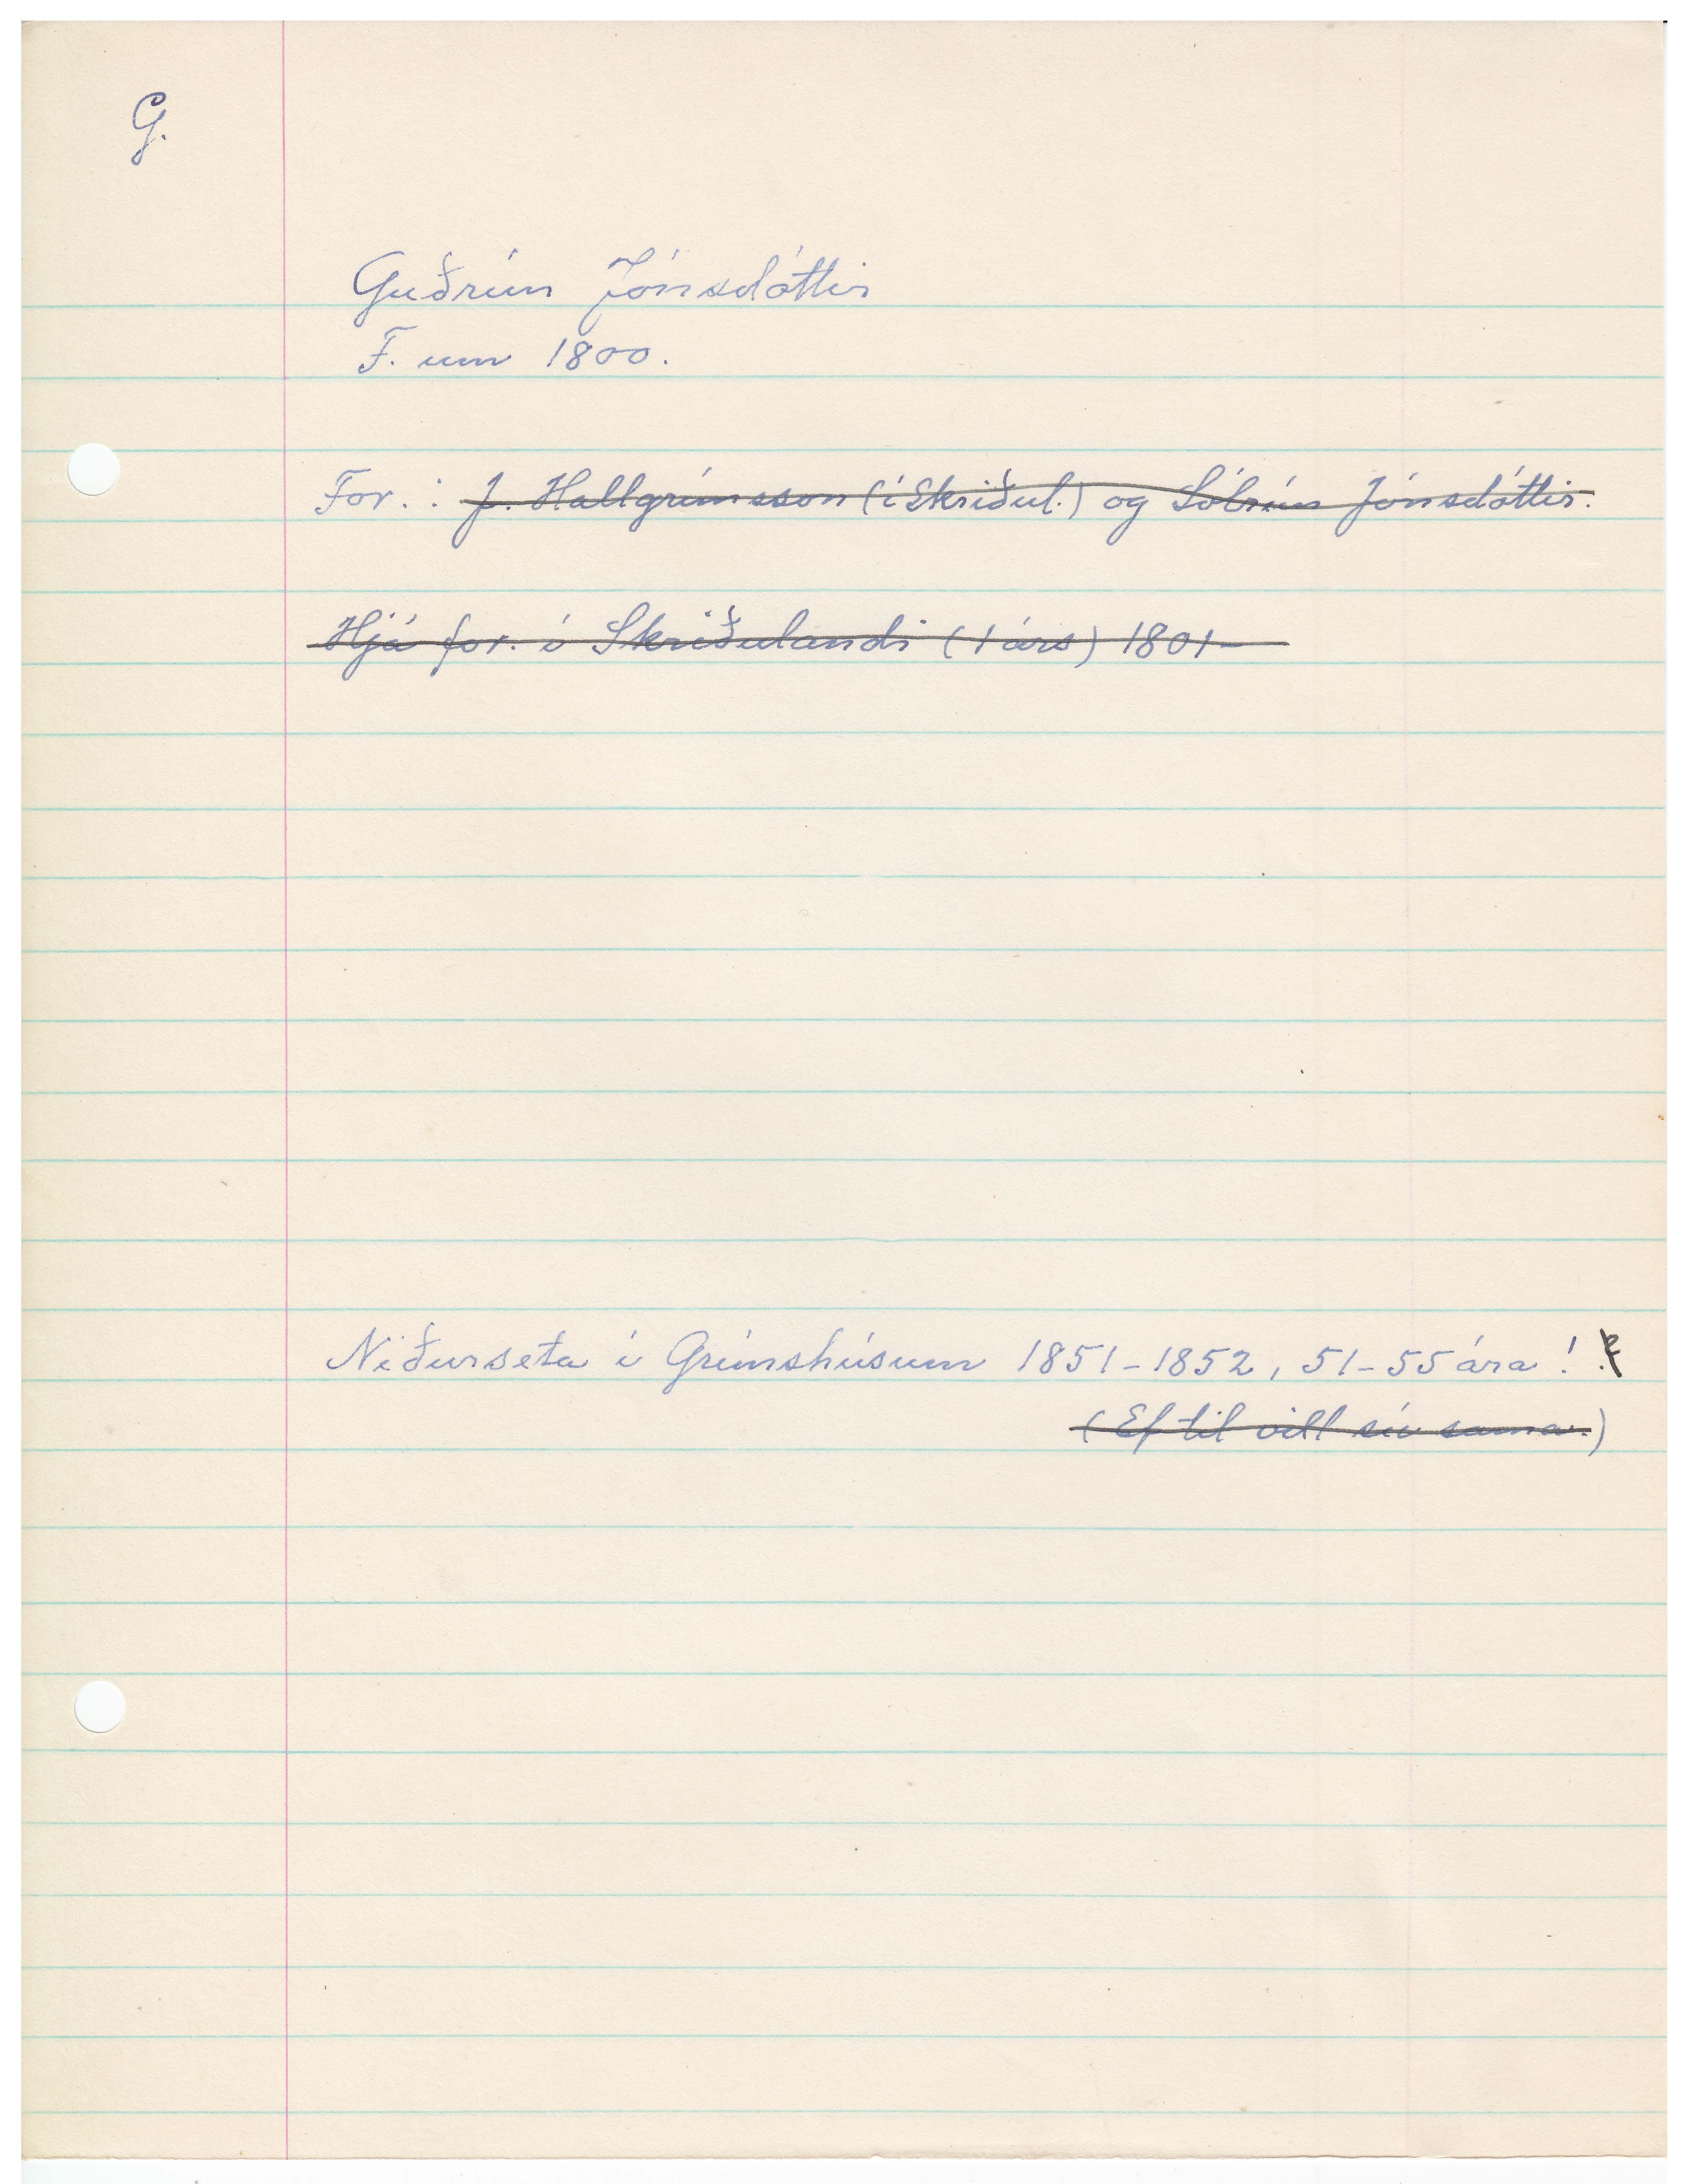 G.
Guðrún Jónsdóttir
F. um 1800.
For.: J. Hallgrímsson (í Skriðul.) og Sólrún Jónsdóttir.
Hjá for. í Skriðulandi (1 árs) 1801
Niðurseta í Grímshúsum 1851-1852, 51-55 ára!
(Ef til vill sú sama.)